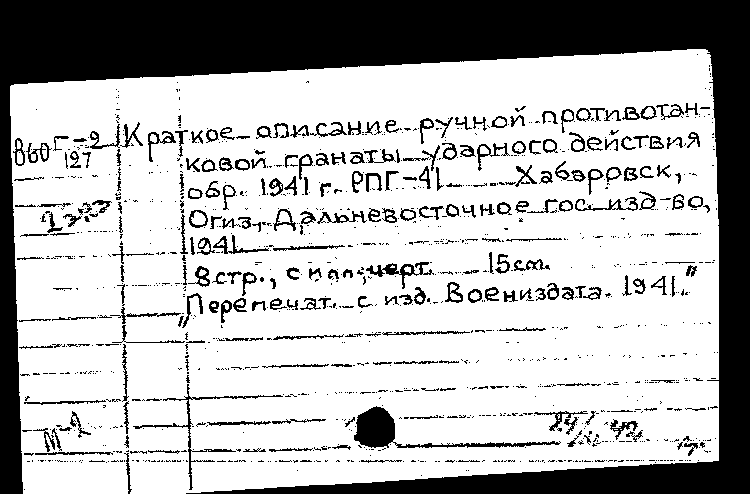 860 Г-2
127
Краткое описание ручной противотан-
ковой гранаты ударного действия
обр. 1941 г. РПГ-41 Хабаровск,
Огиз, Дальневосточное гос. изд-во,
1941.
8 стр., с илл.; черт. 15 см.
"Перепечат. с изд. Воениздата. 1941."
М-2